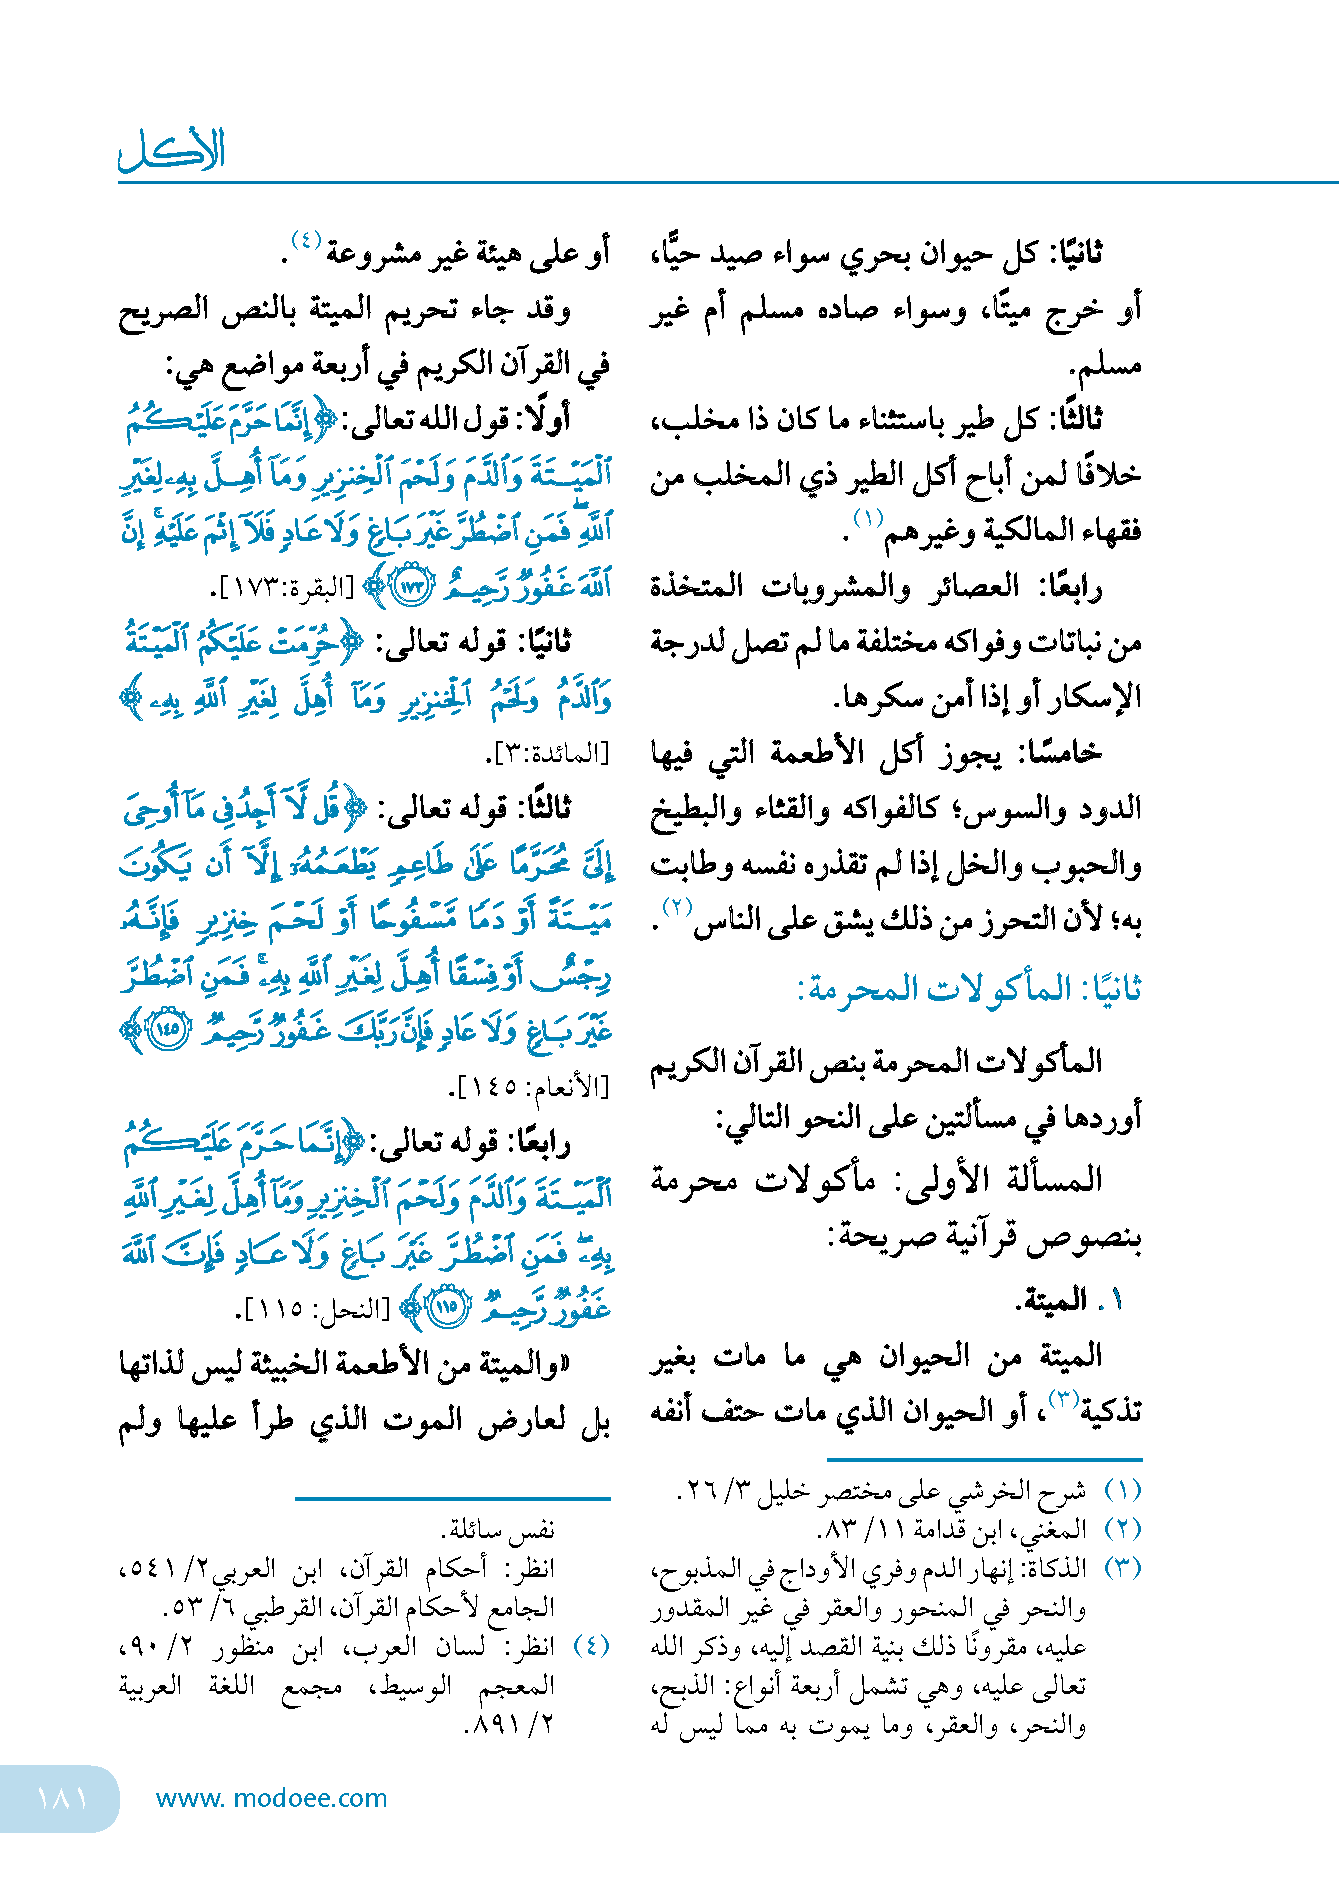 الأكل
ثانيًا: كل حيوان بحري سواء صيد حيًّا،
أو خرج ميتًا، وسواء صاده مسلم أم غير
مسلم.
ثالثًا: كل طير باستثناء ما كان ذا مخلب،
خلافًا لمن أباح أكل الطير ذي المخلب من
فقهاء المالكية وغيرهم(١).
رابعًا: العصائر والمشروبات المتخذة
من نباتات وفواكه مختلفة ما لم تصل لدرجة
الإسكار أو إذا أمن سكرها.
خامسًا: يجوز أكل الأطعمة التي فيها
الدود والسوس؛ كالفواكه والقثاء والبطيخ
والحبوب والخل إذا لم تقذره نفسه وطابت
به؛ لأن التحرز من ذلك يشق على الناس(٢).
ثانيًا: المأكولات المحرمة:
المأكولات المحرمة بنص القرآن الكريم
أوردها في مسألتين على النحو التالي:
المسألة الأولى: مأكولات محرمة
بنصوص قرآنية صريحة:
١. الميتة.
الميتة من الحيوان هي ما مات بغير
تذكية(٣)، أو الحيوان الذي مات حتف أنفه
(١) شرح الخرشي على مختصر خليل ٣/ ٢٦.
(٢) المغني، ابن قدامة ١١/ ٨٣.
(٣) الذكاة: إنهار الدم وفري الأوداج في المذبوح،
والنحر في المنحور والعقر في غير المقدور
عليه، مقرونًا ذلك بنية القصد إليه، وذكر الله
تعالى عليه، وهي تشمل أربعة أنواع: الذبح،
والنحر، والعقر، وما يموت به مما ليس له
أو على هيئة غير مشروعة(٤).
وقد جاء تحريم الميتة بالنص الصريح
في القرآن الكريم في أربعة مواضع هي:
أولًا: قول الله تعالى: ﴿إِنَّمَا حَرَّمَ عَلَيْكُمُ
ٱلْمَيْتَةَ وَٱلدَّمَ وَلَحْمَ ٱلْخِنزِيرِ وَمَآ أُهِلَّ بِهِۦ لِغَيْرِ
ٱللَّهِ ۖ فَمَنِ ٱضْطُرَّ غَيْرَ بَاغٍ وَلَا عَادٍ فَلَآ إِثْمَ عَلَيْهِ ۚ إِنَّ
ٱللَّهَ غَفُورٌ رَّحِيمٌ ١٧٣﴾ [البقرة:١٧٣].
ثانيًا: قوله تعالى: ﴿حُرِّمَتْ عَلَيْكُمُ ٱلْمَيْتَةُ
وَٱلدَّمُ وَلَحْمُ ٱلْخِنزِيرِ وَمَآ أُهِلَّ لِغَيْرِ ٱللَّهِ بِهِۦ﴾
[المائدة:٣].
ثالثًا: قوله تعالى: ﴿قُل لَّآ أَجِدُ فِى مَآ أُوحِىَ
إِلَىَّ مُحَرَّمًا عَلَىٰ طَاعِمٍ يَطْعَمُهُۥٓ إِلَّآ أَن يَكُونَ
مَيْتَةً أَوْ دَمًا مَّسْفُوحًا أَوْ لَحْمَ خِنزِيرٍ فَإِنَّهُۥ
رِجْسٌ أَوْ فِسْقًا أُهِلَّ لِغَيْرِ ٱللَّهِ بِهِۦ ۚ فَمَنِ ٱضْطُرَّ
غَيْرَ بَاغٍ وَلَا عَادٍ فَإِنَّ رَبَّكَ غَفُورٌ رَّحِيمٌ ١٤٥﴾
[الأنعام: ١٤٥].
رابعًا: قوله تعالى: ﴿إِنَّمَا حَرَّمَ عَلَيْكُمُ
ٱلْمَيْتَةَ وَٱلدَّمَ وَلَحْمَ ٱلْخِنزِيرِ وَمَآ أُهِلَّ لِغَيْرِ ٱللَّهِ
بِهِۦ ۖ فَمَنِ ٱضْطُرَّ غَيْرَ بَاغٍ وَلَا عَادٍ فَإِنَّ ٱللَّهَ
غَفُورٌ رَّحِيمٌ ١١٥﴾ [النحل: ١١٥].
«والميتة من الأطعمة الخبيثة ليس لذاتها
بل لعارض الموت الذي طرأ عليها ولم
نفس سائلة.
انظر: أحكام القرآن، ابن العربي٢/ ٥٤١،
الجامع لأحكام القرآن، القرطبي ٦/ ٥٣.
(٤) انظر: لسان العرب، ابن منظور ٢/ ٩٠،
المعجم الوسيط، مجمع اللغة العربية
٢/ ٨٩١.
www. modoee.com
١٨١